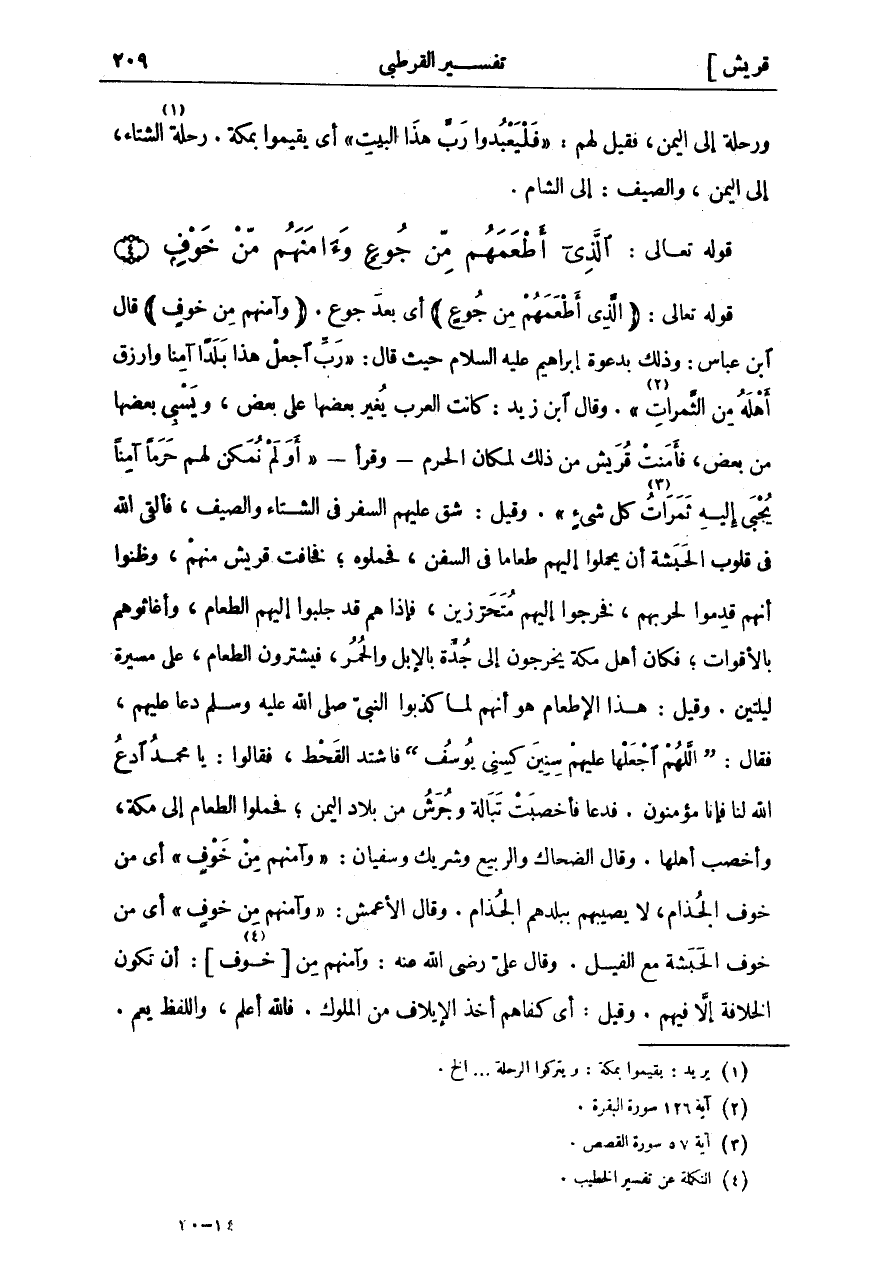 قريش ] تفســير القرطبى ٢٠٩
(١)
ورحلة إلى اليمن، فقيل لهم : «فَلْيَعْبُدُوا رَبَّ هذَا البيتِ» أى يقيموا بمكة . رحلةَ الشتاء،
إلى اليمن ، والصيف : إلى الشام .
قوله تعــالى : ٱلَّذِىٓ أَطْعَمَهُم مِّن جُوعٍ وَءَامَنَهُم مِّنْ خَوْفٍ ﴿٤﴾
قوله تعالى : ﴿ الَّذِى أَطْعَمَهُمْ مِن جُوعٍ ﴾ أى بعدَ جوع . ﴿ وآمنهم مِن خوفٍ ﴾ قال
ٱبن عباس : وذلك بدعوة إبراهيم عليه السلام حيث قال : «رَبِّ ٱجعلْ هذا بَلَدًا آمِنا وٱرزق
(٢)
أَهْلَهُ مِن الثَّمراتِ » . وقال ٱبن زيد : كانت العرب يُغير بعضها على بعض ، ويَسْبِى بعضها
من بعض، فأَمَنَتْ قُرَيش من ذلك لمكان الحرم — وقرأ — « أَوَلَمْ نُمَكن لهم حَرَماً آمِناً
(٣)
يُجْبَى إليــهِ ثَمَرَاتُ كل شىءٍ » . وقيل : شق عليهم السفر فى الشــتاء والصيف ، فألقى الله
فى قلوب الحَبَشة أن يحملوا إليهم طعاما فى السفن ، فحملوه ؛ فخافت قريش منهمْ ، وظنوا
أنهم قدِموا لحربهم ، فخرجوا إليهم مُتَحَرّزين ، فإذا هم قد جلبوا إليهم الطعام ، وأغاثوهم
بالأقوات ؛ فكان أهل مكة يخرجون إلى جُدَّة بالإبل والحُمُر ، فيشترون الطعام ، على مسيرة
ليلتين . وقيل : هــذا الإطعام هو أنهم لمــا كذبوا النبىّ صلى الله عليه وســلم دعا عليهم ،
فقال : ” اللَّهُمْ ٱجْعَلْها عليهمْ سِنِينَ كَسِنِى يُوسُفَ “ فاشتد القَحْط ، فقالوا : يا محمــدُ ٱدعُ
الله لنا فإنا مؤمنون . فدعا فأخصبَتْ تَبَالة وجُرَشُ من بلاد اليمن ؛ فحملوا الطعام إلى مكة،
وأخصب أهلها . وقال الضحاك والربيع وشريك وسفيان : « وآمنهم مِنْ خَوْفٍ » أى من
خوف الجُذام، لا يصيبهم ببلدهم الجُذام . وقال الأعمش : « وآمنهم مِن خوفٍ » أى من
(٤)
خوف الحَبَشة مع الفيــل . وقال علىّ رضى الله عنه : وآمنهم مِن [ خــوف ] : أن تكون
الخلافة إلَّا فيهم . وقيل : أى كفاهم أخذ الإيلاف من الملوك . فالله أعلم ، واللفظ يعم .
(١) يريد : يقيموا بمكة : ويتركوا الرحلة ... الخ .
(٢) آية ١٢٦ سورة البقرة .
(٣) آية ٥٧ سورة القصص .
(٤) التكلة عن تفسير الخطيب .
١٤—٢٠